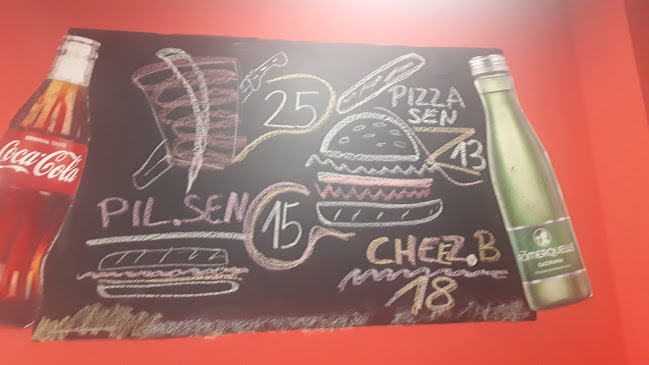 ORIGINAL TASTE
Coca-Cola
25
PIZZA
SEN
13
PIL.SEN
15
CHEEZ.B
18
RÖMERQUELLE